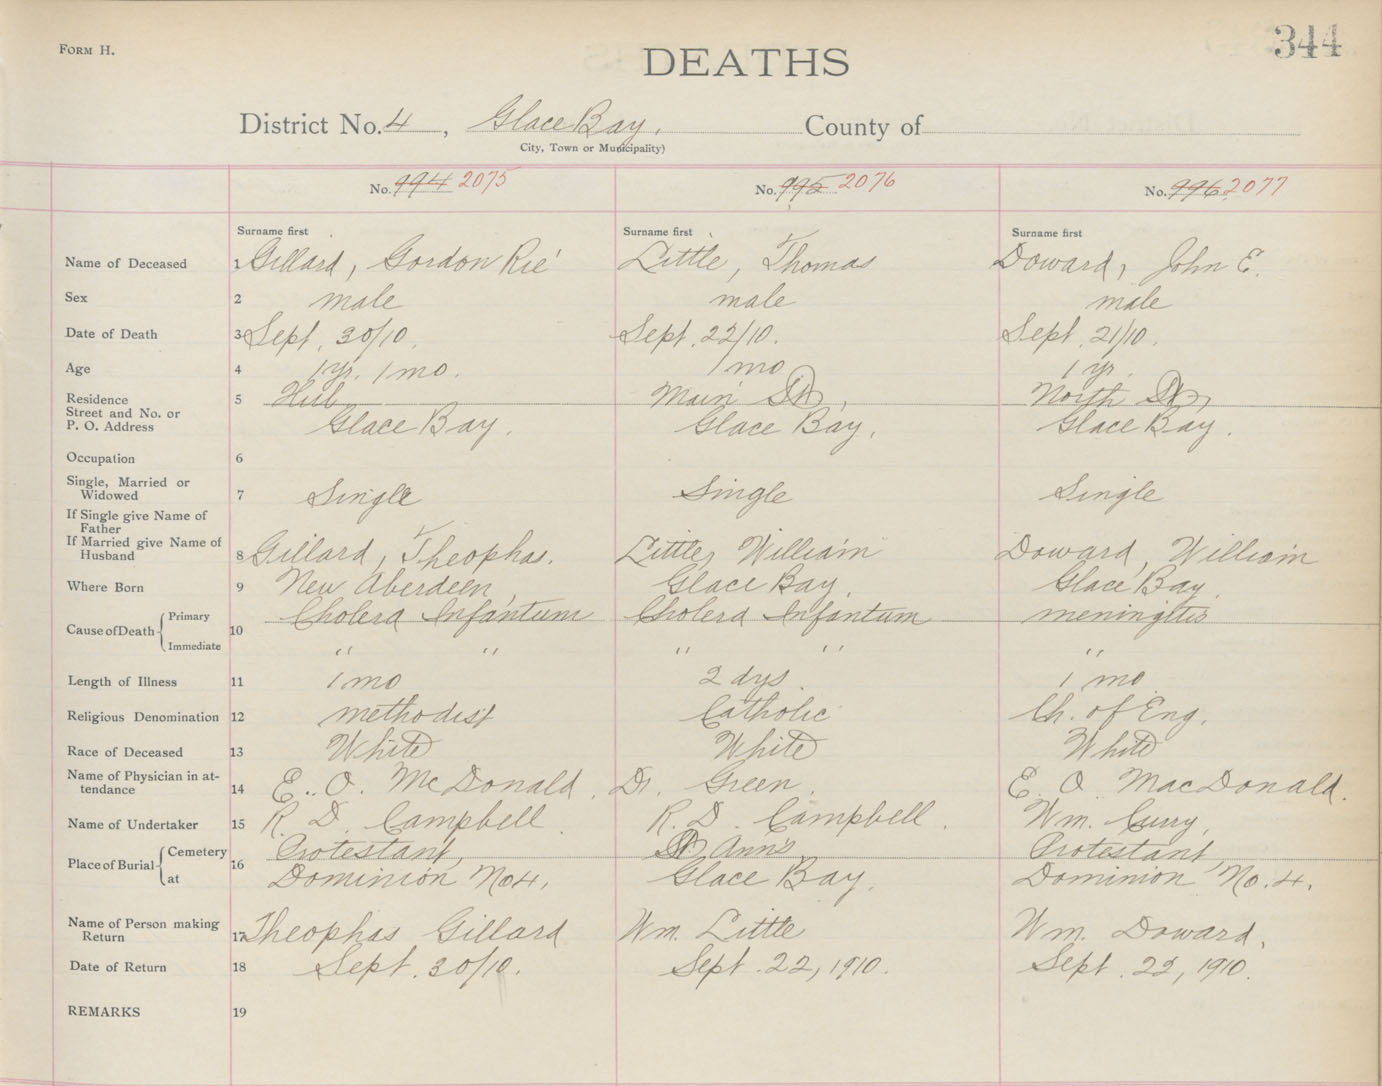 FORM H.
344
DEATHS
District No. 4, Glace Bay, County of
City, Town or Municipality)
No. 994 2075 No. 995 2076 No. 996 2077
Surname first Surname first Surname first
Name of Deceased 1 Gillard, Gordon Rie' Little, Thomas Doward, John E.
Sex 2 male male male
Date of Death 3 Sept. 30/10. Sept. 22/10. Sept. 21/10.
Age 4 1 yr. 1 mo. 1 mo 1 yr.
Residence 5 Hub Main St, North St,
Street and No. or
P. O. Address Glace Bay. Glace Bay. Glace Bay.
Occupation 6
Single, Married or
Widowed 7 Single Single Single
If Single give Name of
Father
If Married give Name of
Husband 8 Gillard, Theophas. Little, William Doward, William
Where Born 9 New Aberdeen Glace Bay. Glace Bay.
Cause of Death Primary 10 Cholera Infantum Cholera Infantum meningitis
Immediate " " " " "
Length of Illness 11 1 mo 2 dys. 1 mo.
Religious Denomination 12 methodist Catholic Ch. of Eng.
Race of Deceased 13 White White White
Name of Physician in at-
tendance 14 E. O. McDonald. Dr. Green. E. O. MacDonald.
Name of Undertaker 15 R. D. Campbell. R. D. Campbell. Wm. Curry,
Place of Burial Cemetery 16 Protestant, St Ann's, Protestant,
at Dominion No 4, Glace Bay. Dominion No. 4.
Name of Person making
Return 17 Theophas Gillard Wm. Little Wm. Doward,
Date of Return 18 Sept. 30/10. Sept. 22, 1910. Sept. 22, 1910.
REMARKS 19